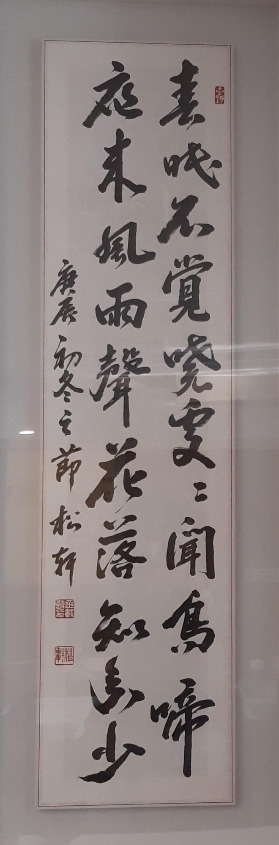 春眠不覺曉處〻聞鳥啼
夜来風雨聲花落知多少
庚辰初冬之節松軒